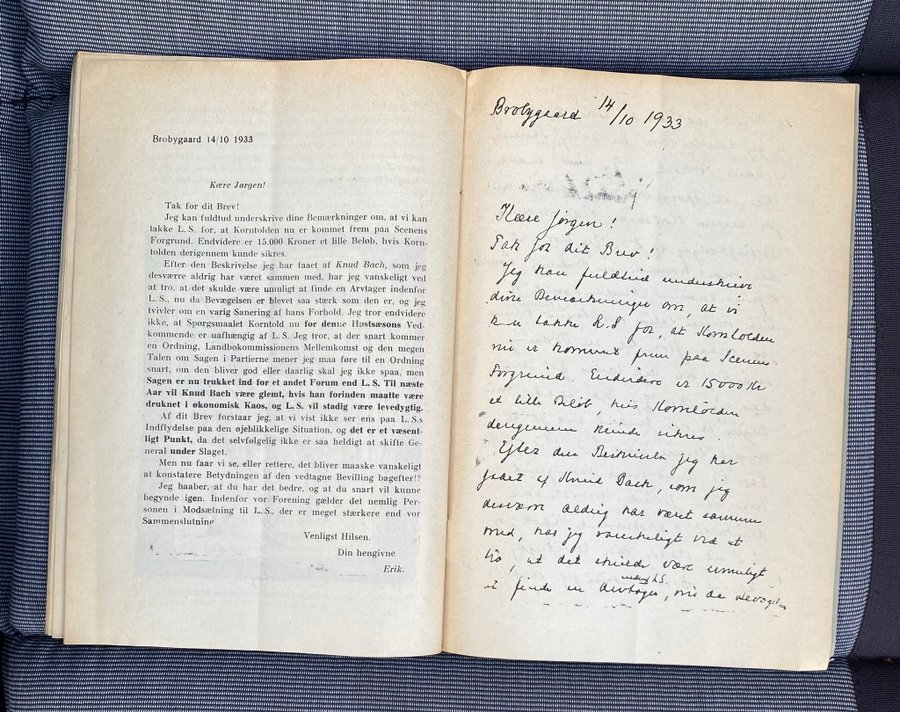 Brobygaard 14/10 1933
Kære Jørgen!
Tak for dit Brev!
Jeg kan fuldtud underskrive dine Bemærkninger om, at vi kan
takke L. S. for, at Korntolden nu er kommet frem paa Scenens
Forgrund. Endvidere er 15.000 Kroner et lille Beløb, hvis Korn-
tolden derigennem kunde sikres.
Efter den Beskrivelse jeg har faaet af Knud Bach, som jeg
desværre aldrig har været sammen med, har jeg vanskeligt ved
at tro, at det skulde være umuligt at finde en Arvtager indenfor
L. S., nu da Bevægelsen er blevet saa stærk som den er, og jeg
tvivler om en varig Sanering af hans Forhold. Jeg tror endvidere
ikke, at Spørgsmaalet Korntold nu for denne Høstsæsons Ved-
kommende er uafhængig af L. S. Jeg tror, at der snart kommer
en Ordning, Landbokommissionens Mellemkomst og den megen
Talen om Sagen i Partierne mener jeg maa føre til en Ordning
snart, om den bliver god eller daarlig skal jeg ikke spaa, men
Sagen er nu trukket ind for et andet Forum end L. S. Til næste
Aar vil Knud Bach være glemt, hvis han forinden maatte være
druknet i økonomisk Kaos, og L. S. vil stadig være levedygtig.
Af dit Brev forstaar jeg, at vi vist ikke ser ens paa L. S.s
Indflydelse paa den øjeblikkelige Situation, og det er et væsent-
ligt Punkt, da det selvfølgelig ikke er saa heldigt at skifte Ge-
neral under Slaget.
Men nu faar vi se, eller rettere, det bliver maaske vanskeligt
at konstatere Betydningen af den vedtagne Bevilling bagefter!?
Jeg haaber, at du har det bedre, og at du snart vil kunne
begynde igen. Indenfor vor Forening gælder det nemlig Per-
sonen i Modsætning til L. S., der er meget stærkere end vor
Sammenslutning
Venligst Hilsen.
Din hengivne
Erik.
Brobygaard 14/10 1933
Kære Jørgen!
Tak for dit Brev!
Jeg kan fuldtud underskrive
dine Bemærkninger om, at vi
kan takke L.S for, at Korntolden
nu er kommet frem paa Scenens
Forgrund. Endvidere er 15000 Kr
et lille Beløb, hvis Korntolden
derigennem kunde sikres.
Efter den Beskrivelse jeg har
faaet af Knud Bach, som jeg
desværre aldrig har været sammen
med, har jeg vanskeligt ved at
tro, at det skulde være umuligt
at finde en Arvtager indenf. L.S., nu da Bevægelsen